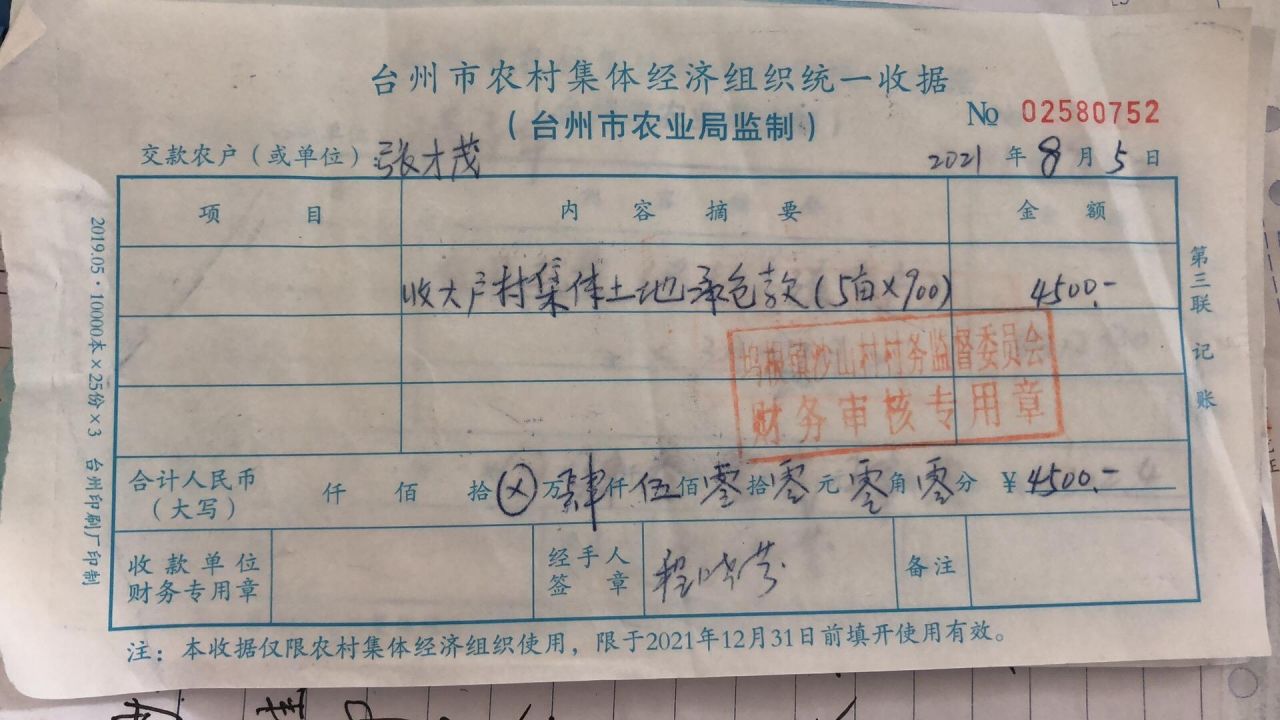 台州市农村集体经济组织统一收据
（台州市农业局监制）
No 02580752
交款农户（或单位）张才茂
2021 年 8 月 5 日
项 目 内 容 摘 要 金 额
收大户村集体土地承包款(5亩×900) 4500.-
坞根镇沙山村村务监督委员会
财务审核专用章
合计人民币
（大写）
仟 佰 拾 ⊗ 万 肆 仟 伍 佰 零 拾 零 元 零 角 零 分 ￥4500.-
收款单位
财务专用章
经手人
签 章
备注
注：本收据仅限农村集体经济组织使用，限于2021年12月31日前填开使用有效。
2019.05·10000本×25份×3 台州印刷厂印制
第三联 记账